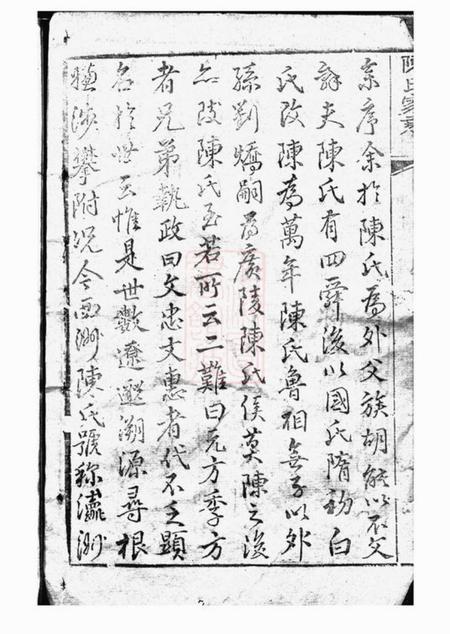 陳氏家乘
亲序余於陳氏為外父族胡能以不文
辭夫陳氏有四舜後以國氏隋初白
氏改陳為萬年陳氏魯相無子以外
孫劉矯嗣為廣陵陳氏侯莫陳之後
為河陵陳氏至若所云二難曰元方季方
者兄弟執政曰文忠文惠者代不乏顯
名於世至惟是世數遼邈溯源尋根
難涉攀附況今西洲陳氏號称瀛洲